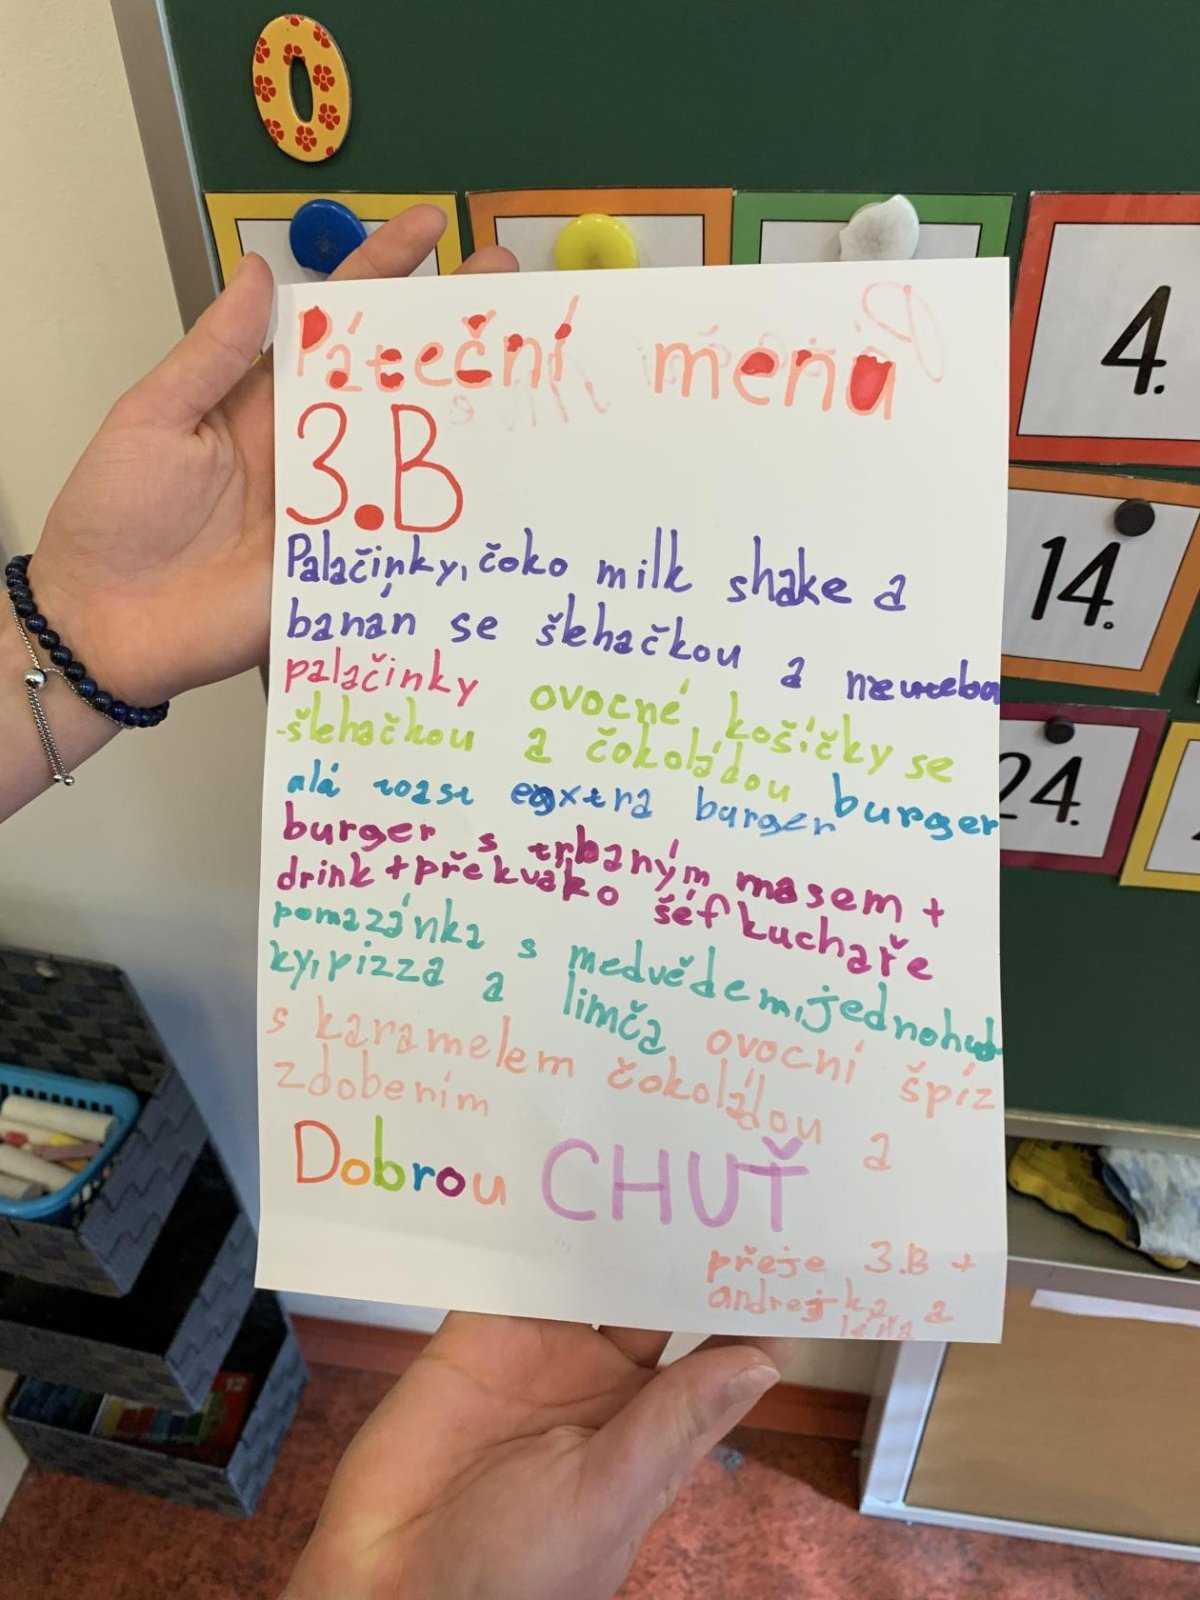 0
4.
14.
24.
Páteční menu
3.B
Palačinky, čoko milk shake a
banán se šlehačkou a
palačinky ovocné košíčky se
šlehačkou a čokoládou
alá toast egxtra burger burger
burger s trhaným masem +
drink + překvako šéf kuchaře
pomazánka s medvědem, jednohub
ky, pizza a limča ovocní špíz
s karamelem čokoládou a
zdobením
Dobrou CHUŤ
přeje 3.B +
andrejka a